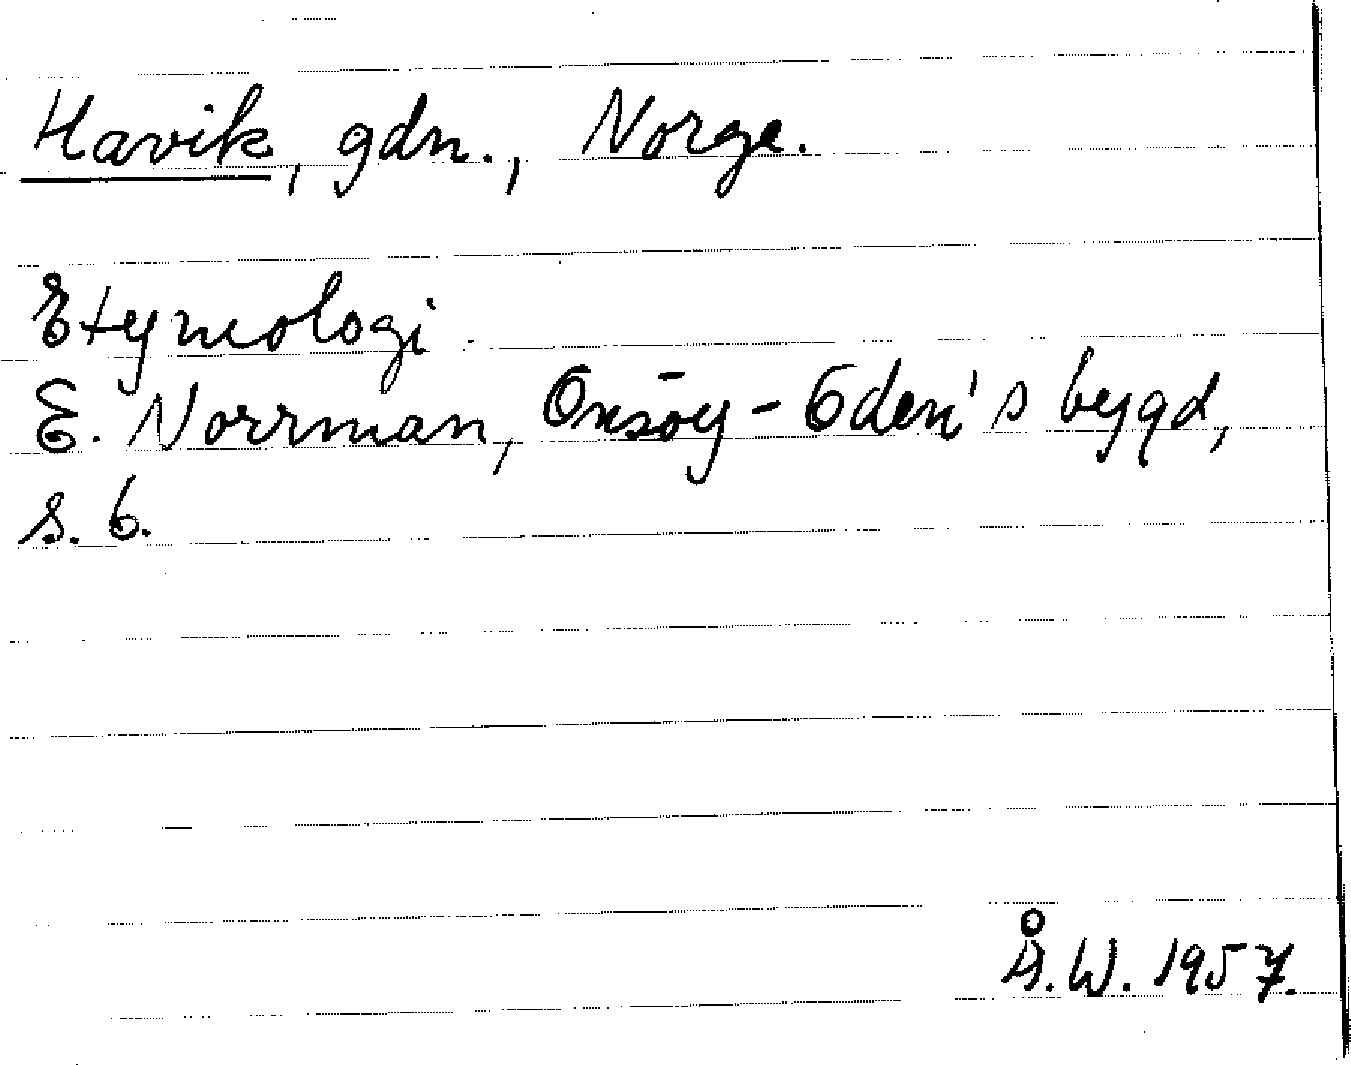 Havik, gdn., Norge.
Etymologi.
E. Norrman, Onsöy - Oden's bygd,
s. 6.
Å.W. 1957.